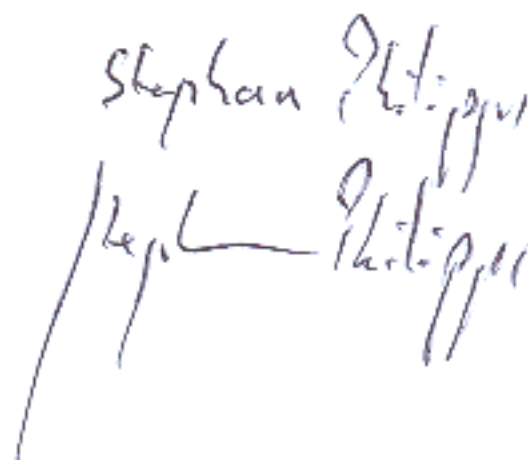 Stephan Philippi
Stephan Philippi